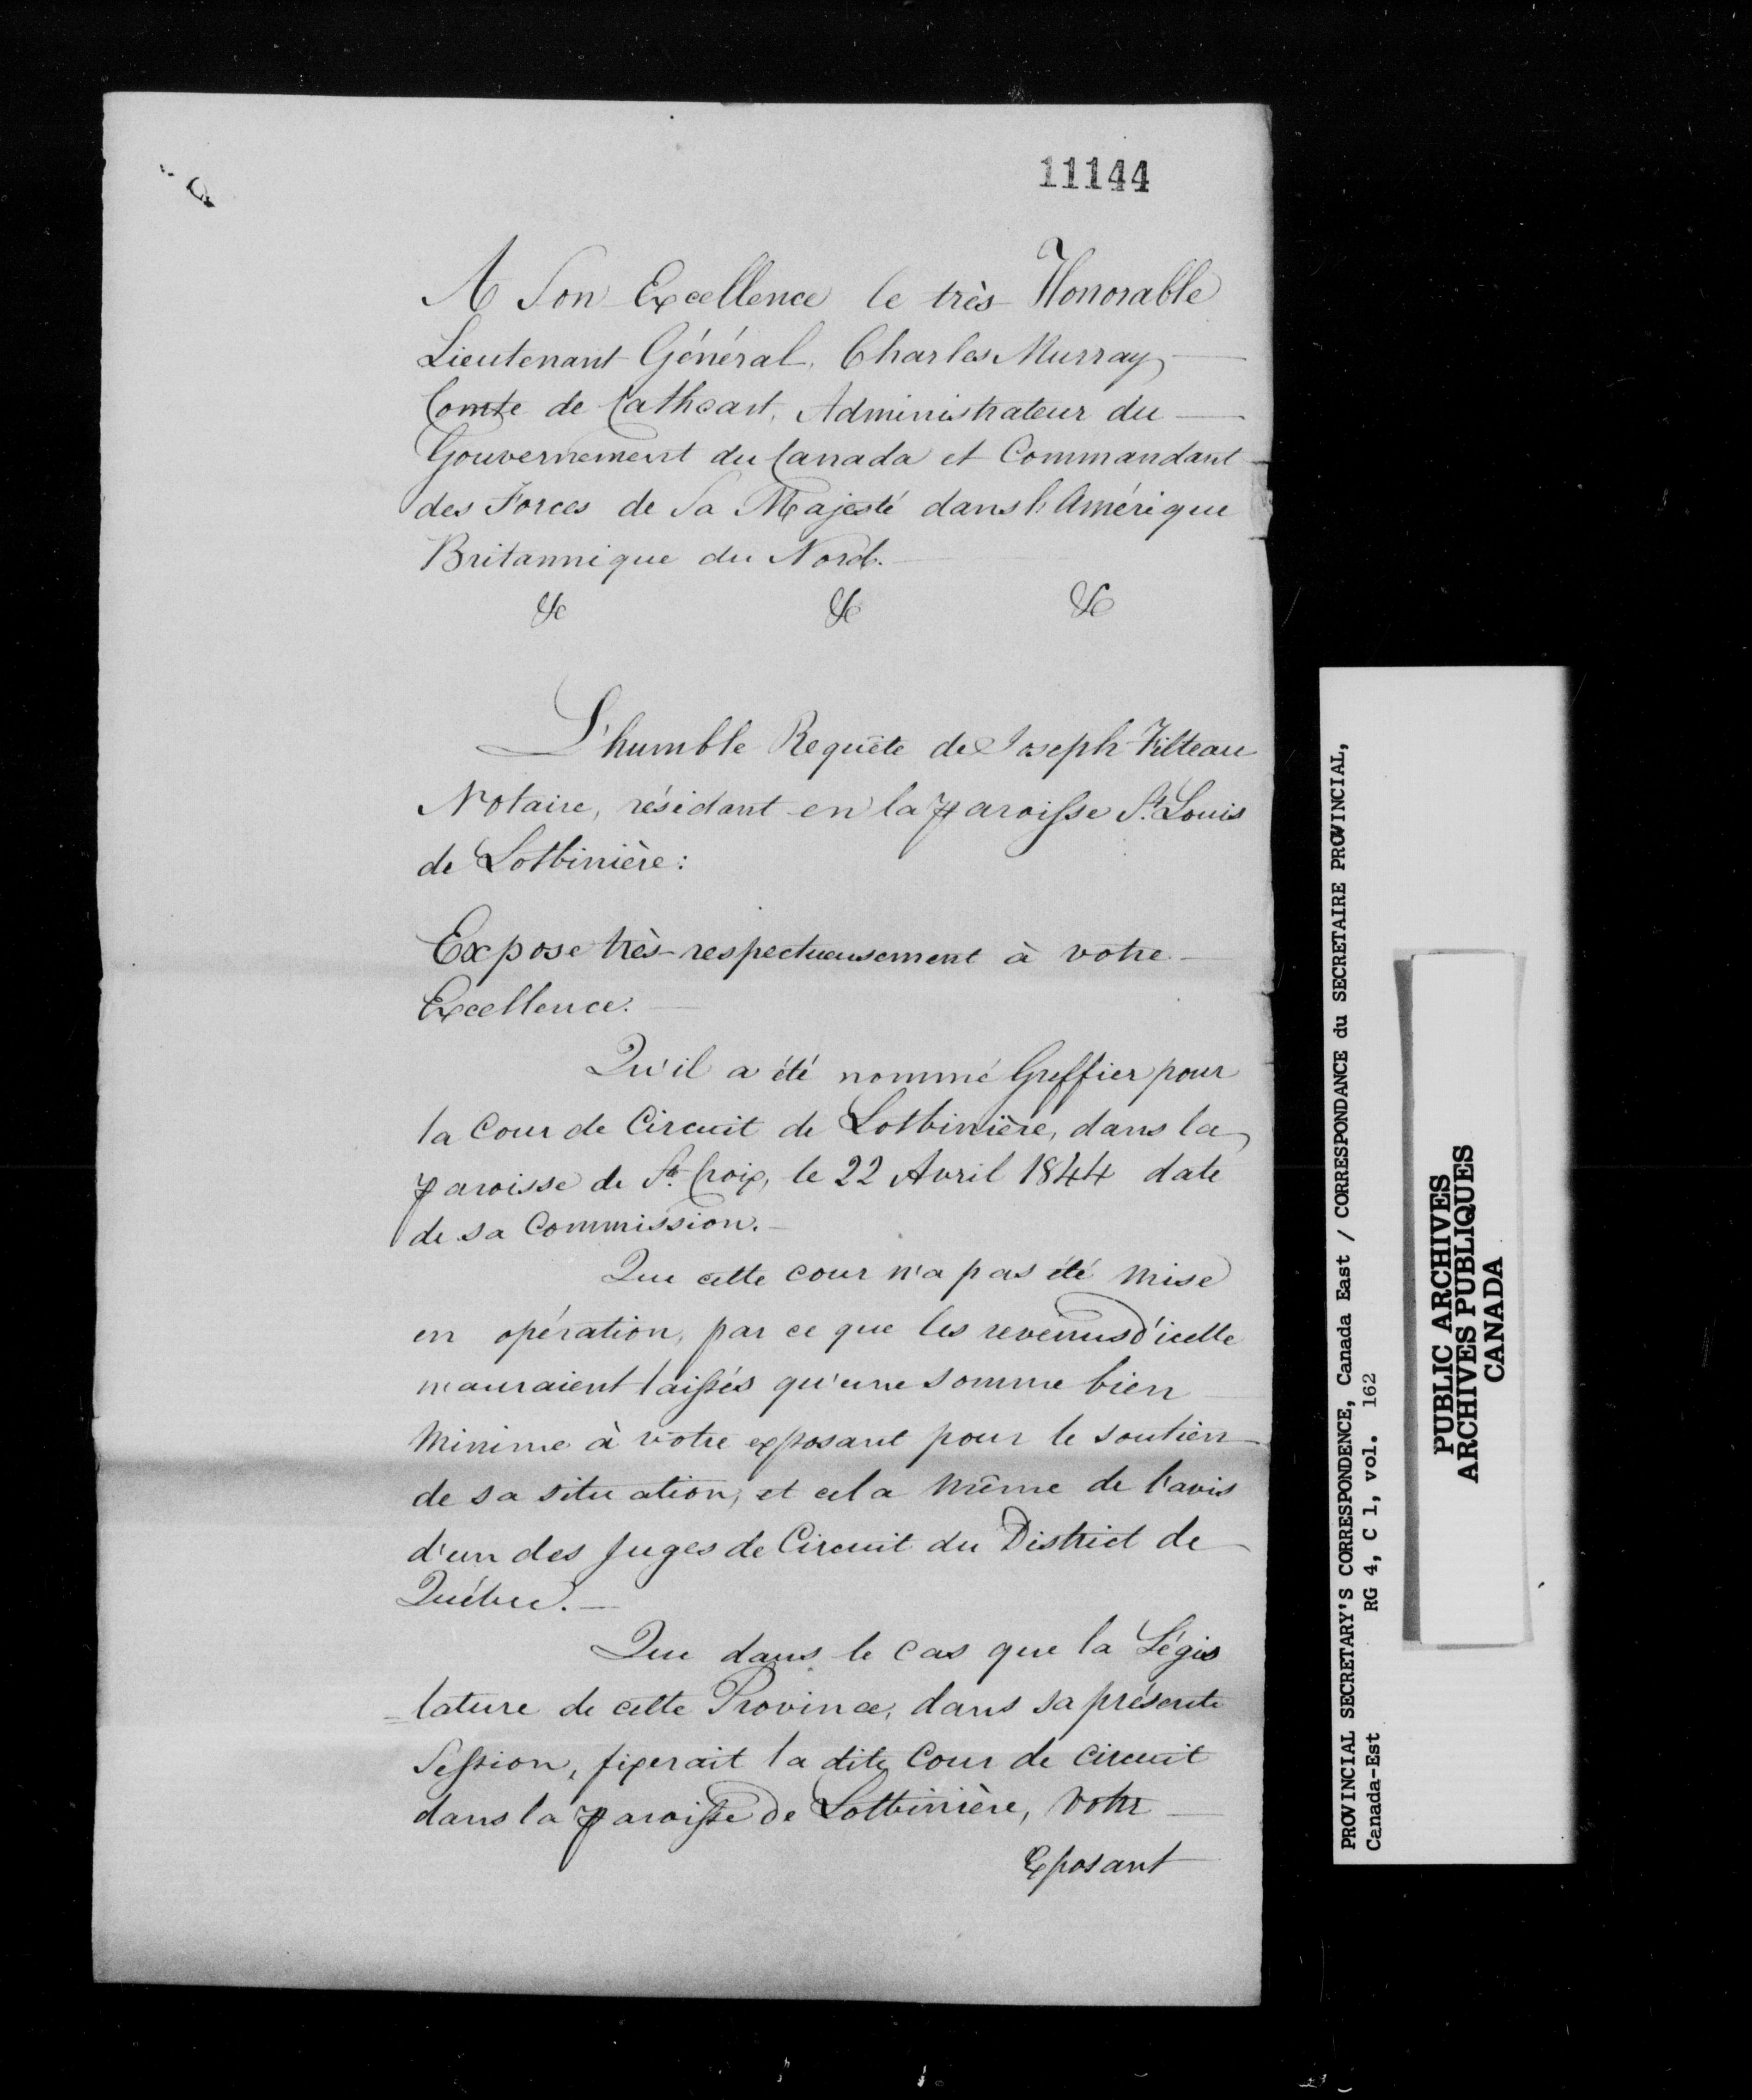 11144
A Son Excellence le très Honorable
Lieutenant Général, Charles Murray
Comte de Cathcart, Administrateur du
Gouvernement du Canada et Commandant
des Forces de Sa Majesté dans l'Amérique
Britannique du Nord.
&c &c &c
L'humble Requête de Joseph Filteau
Notaire, résidant en la paroisse St. Louis
de Lotbinière:
Expose très-respectueusement à votre
Excellence.
Qu'il a été nommé Greffier pour
la Cour de Circuit de Lotbinière, dans la
paroisse de Ste. Croix, le 22 Avril 1844 date
de sa Commission.
Que cette cour n'a pas été mise
en opération, par ce que les revenus d'icelle
n'auraient laissés qu'une somme bien
minime à votre exposant pour le soutien
de sa situation, et cela même de l'avis
d'un des Juges de Circuit du District de
Québec.
Que dans le cas que la Légis
=lature de cette Province, dans sa présente
Session, fixerait la dite Cour de Circuit
dans la paroisse de Lotbinière, Votre
Exposant
PROVINCIAL SECRETARY'S CORRESPONDENCE, Canada East / CORRESPONDANCE du SECRETAIRE PROVINCIAL,
Canada-Est RG 4, C 1, vol. 162
PUBLIC ARCHIVES
ARCHIVES PUBLIQUES
CANADA